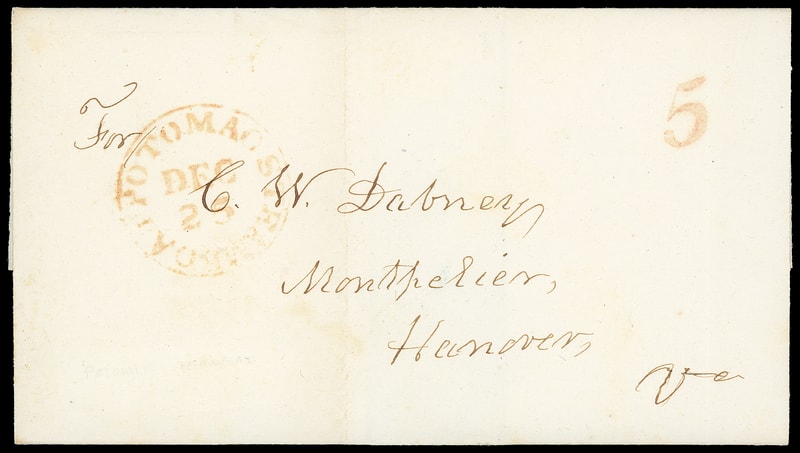 For
POTOMAC STEAMBOAT
DEC
23
5
C. W. Dabney
Montpelier,
Hanover,
Va